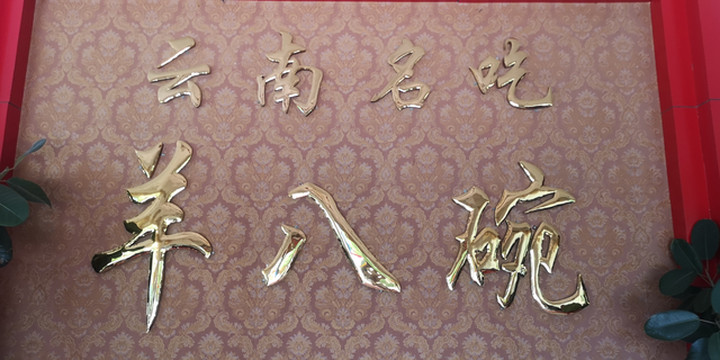 云南名吃
羊八碗